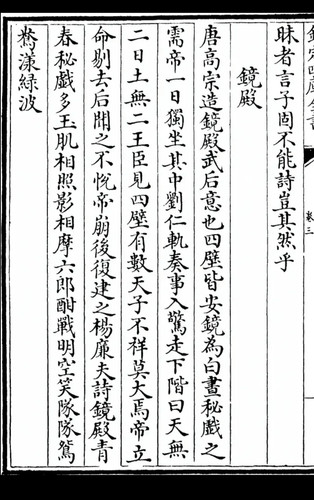 欽定四庫全書
卷三
昧者言子固不能詩豈其然乎
鏡殿
唐高宗造鏡殿武后意也四壁皆安鏡為白晝秘戲之
需帝一日獨坐其中劉仁軌奏事入驚走下階曰天無
二日土無二王臣見四壁有數天子不祥莫大焉帝立
命剔去后聞之不悅帝崩後復建之楊廉夫詩鏡殿青
春秘戲多玉肌相照影相摩六郎酣戰明空笑隊隊鴛
鴦漾綠波